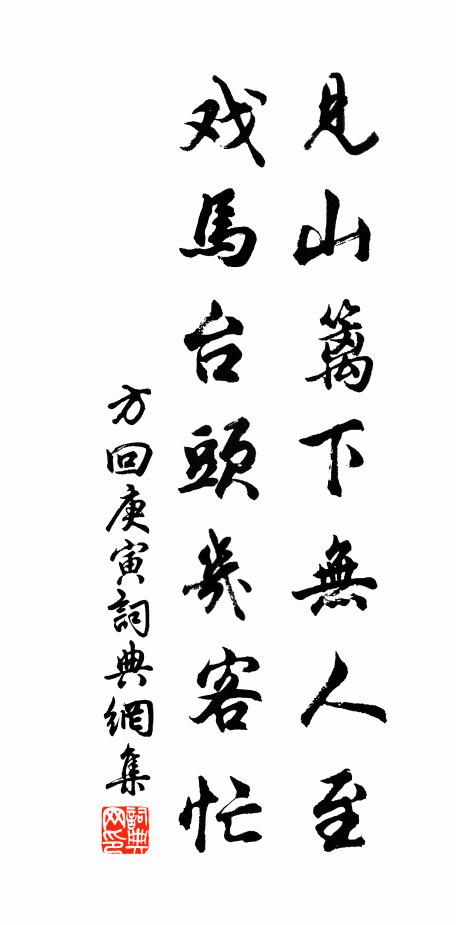 見山籬下無人至
戏馬台頭幾客忙
方回庚寅詞典網集
詞典网印